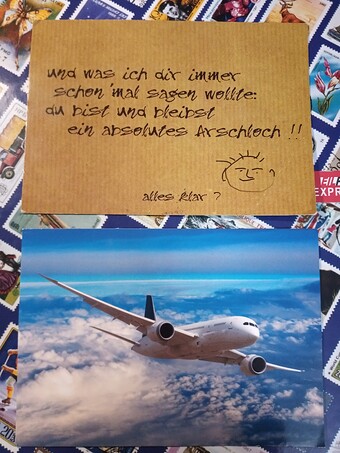 und was ich dir immer
schon 'mal sagen wollte:
du bist und bleibst
ein absolutes Arschloch !!
alles klar ?
EXPR